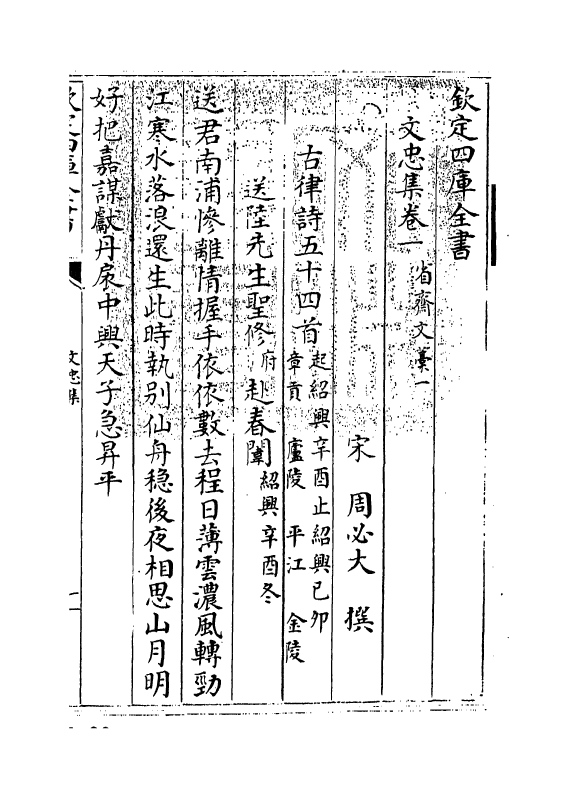 欽定四庫全書
文忠集卷一 省齋文藁一
宋 周必大 撰
古律詩五十四首 起紹興辛酉止紹興己卯 章貢 廬陵 平江 金陵
送陸先生聖修府赴春闈 紹興辛酉冬
送君南浦慘離情握手依依數去程日薄雲濃風轉勁
江寒水落浪還生此時執別仙舟穏後夜相思山月明
好把嘉謀獻丹扆中興天子急昇平
欽定四庫全書
文忠集
一